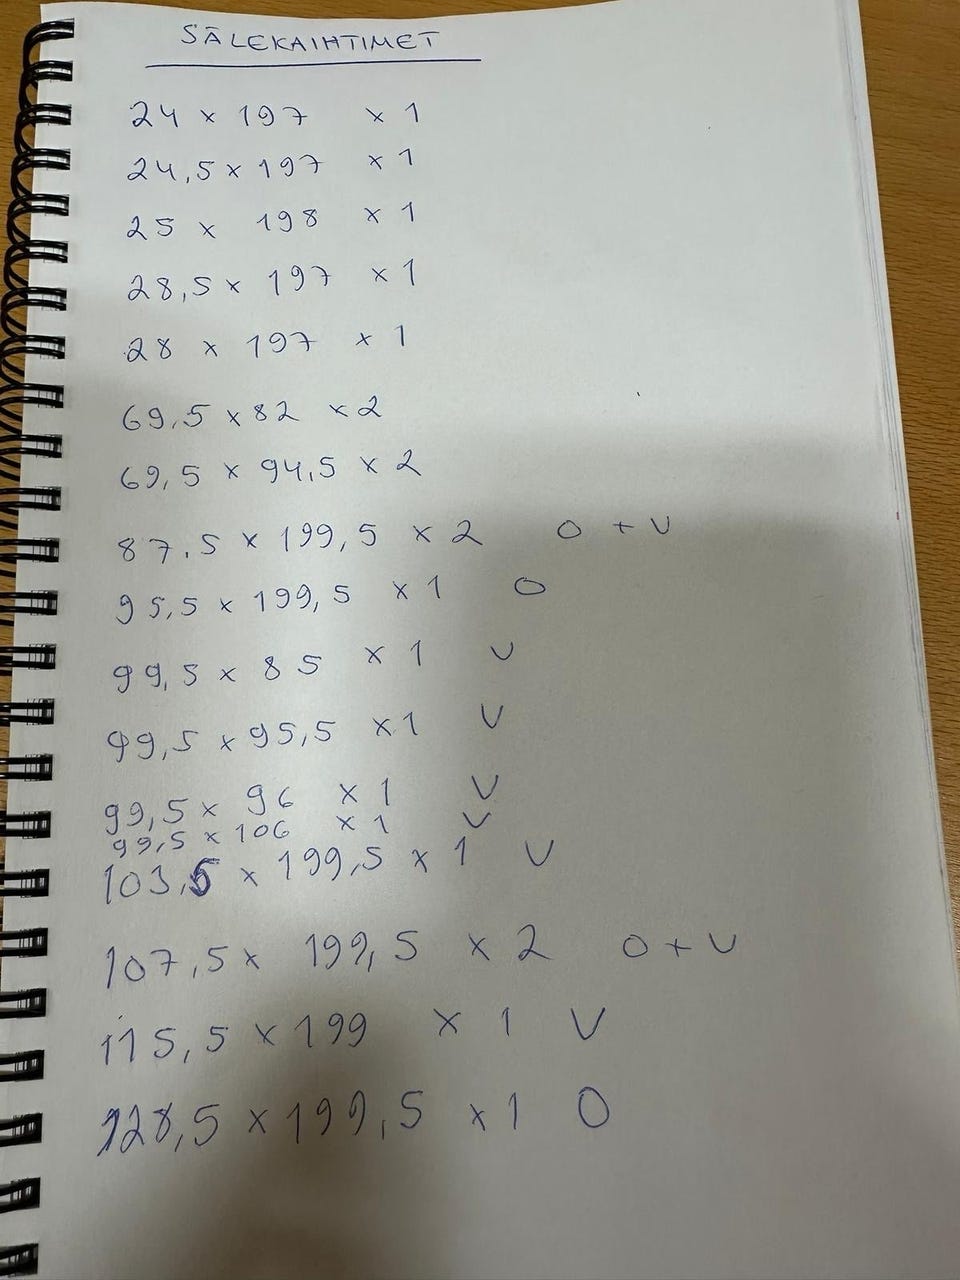 SÄLEKAIHTIMET
24 x 197 x 1
24,5 x 197 x 1
25 x 198 x 1
28,5 x 197 x 1
28 x 197 x 1
69,5 x 82 x 2
69,5 x 94,5 x 2
87,5 x 199,5 x 2 O + V
95,5 x 199,5 x 1 O
99,5 x 85 x 1 V
99,5 x 95,5 x 1 V
99,5 x 96 x 1 V
99,5 x 106 x 1 V
103,5 x 199,5 x 1 V
107,5 x 199,5 x 2 O + V
115,5 x 199 x 1 V
128,5 x 199,5 x 1 O